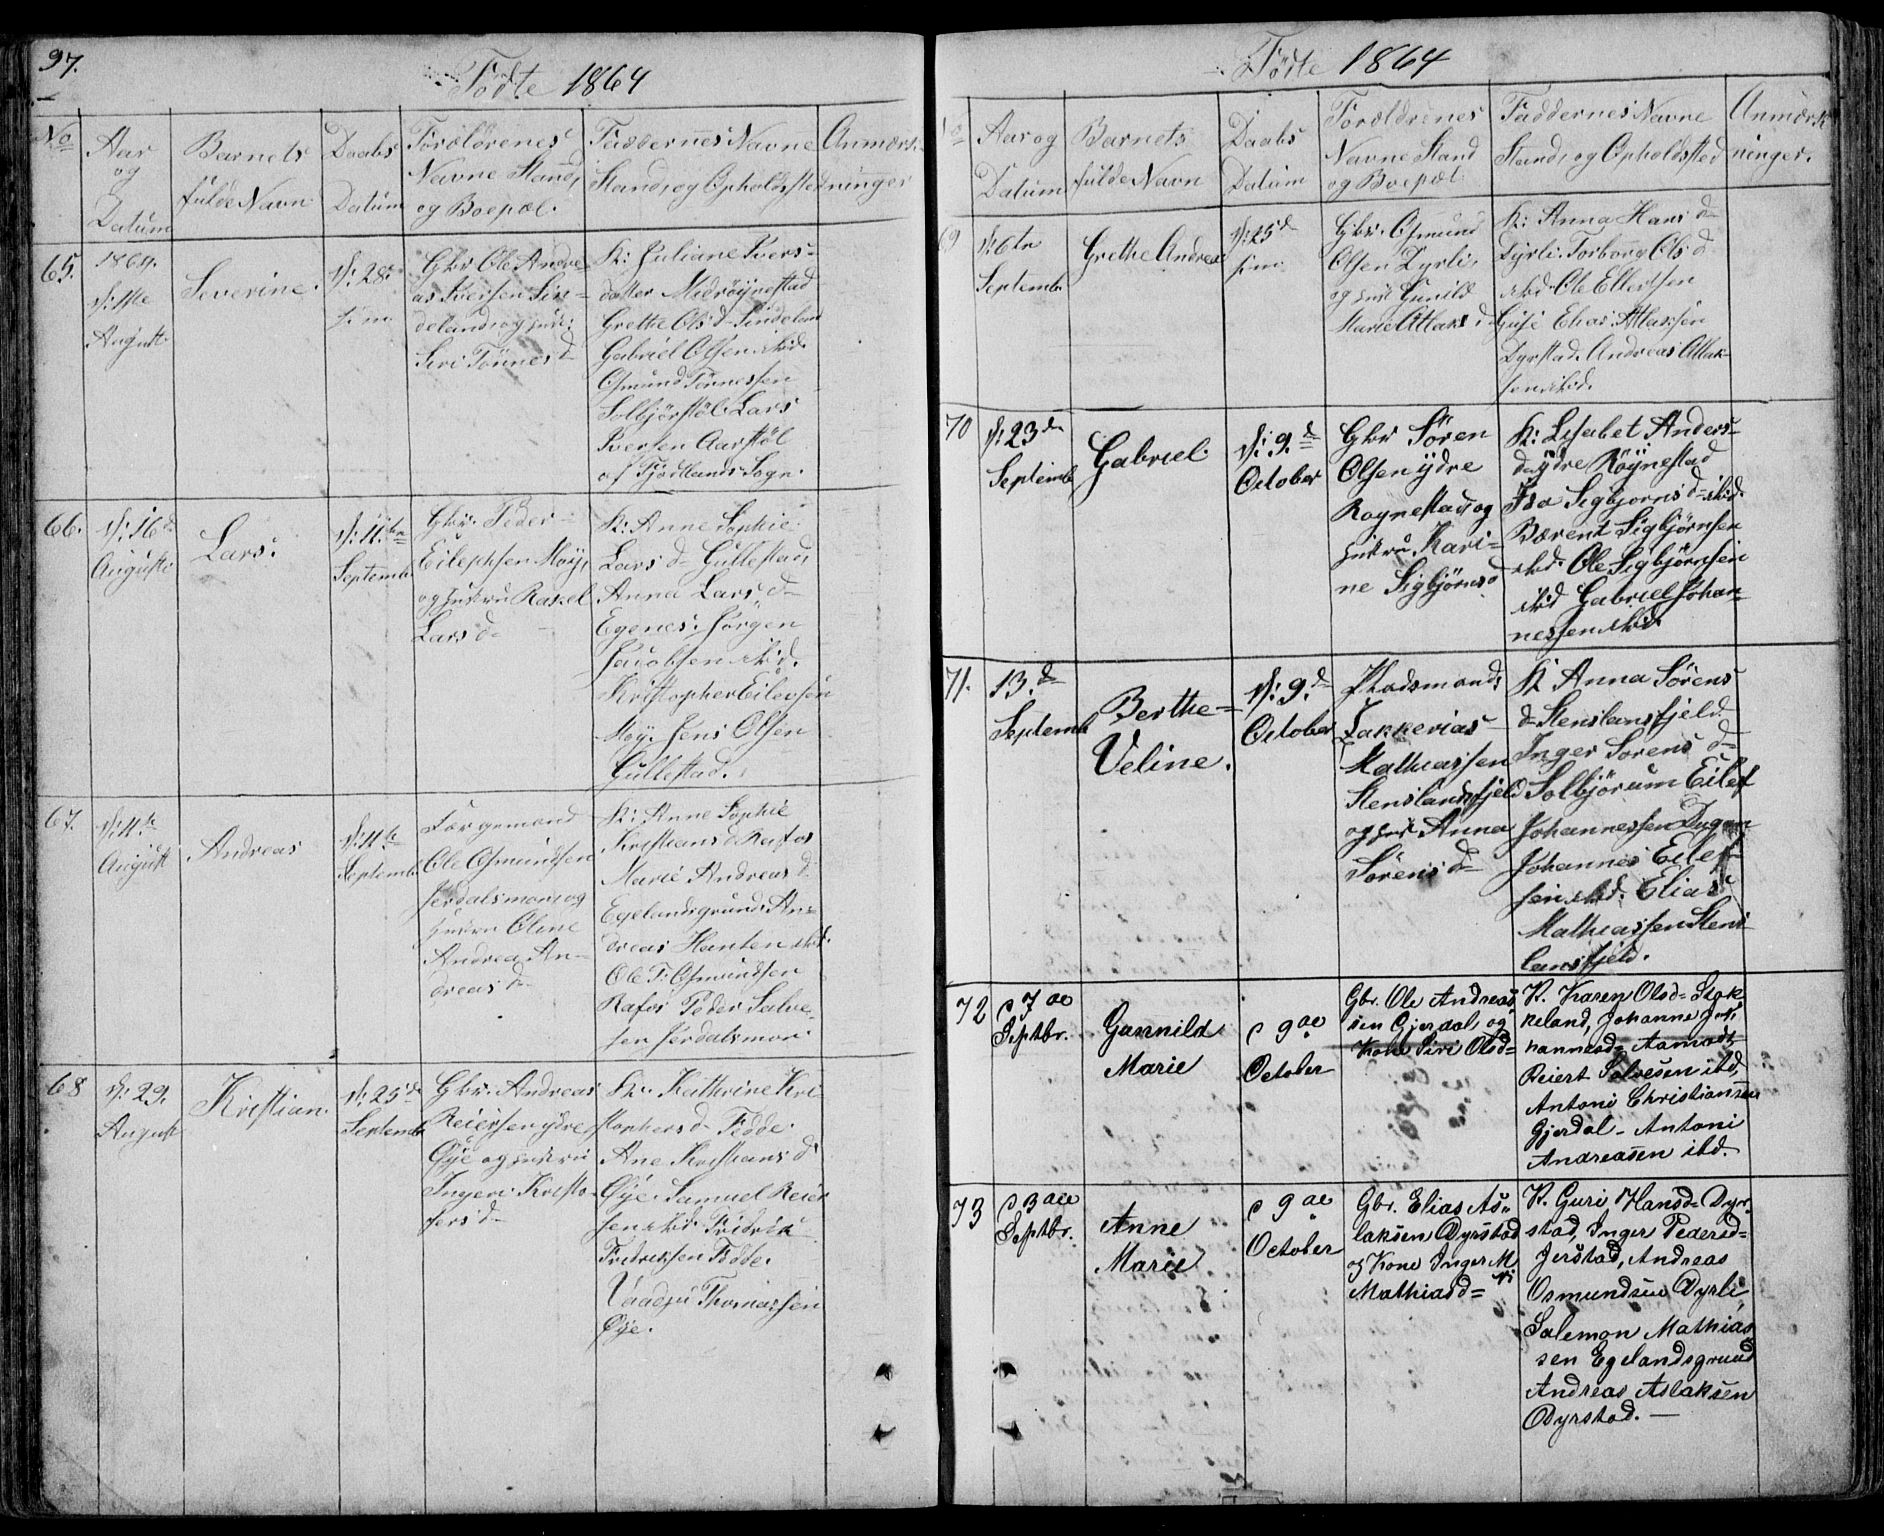 97.
Födte 1864
No
Aar
og
Datum
Barnets
fulde Navn
Daabs
Datum
Forældrenes
Navne Stand,
og Boepæl.
Faddernes Navne
Stand, og Opholdssted
Anmærk-
ninger
65.
1864.
d: 11te
August
Severine.
d: 28de
s: m.
Gbr Ole Andre-
as Iversen Sin-
deland, og hust:
Siri Tönnes d-
K: Juliane Ivers-
datter Midröynestad
Grethe Ols d- Sindeland
Gabriel Olsen ibid.
Osmund Tönnessen
Solbjörstöl. Lars
Iversen Aarstöl
af Fjotlands Sogn.
66.
d: 16d.
Auguste
Lars.
d: 11te
Septemb
Gbr. Peder
Eilephsen Moy,
og hustru Rakel
Lars d-
K: Anne Sophie
Lars d- Gullestad,
Anna Lars d-
Egenes. Jörgen
Jacobsen ibid.
Kristopher Eilevsen
Moy. Jens Olsen
Gullestad.
67.
d: 11te
August
Andreas
d: 11te
Septemb
Færgemand
Ole Osmundsen
Jerdalsmon, og
hustru Oline
Andrea An-
dreas d-
K: Anne Sophie
Kristians d Rafos
Marie Andreas d.
Egelandsgrund. An-
dreas Hansen ibd.
Ole T. Osmundsen
Rafos Peder Salve-
sen Jerdalsmon
68
d: 29.
August
Kristian.
d: 25de
Septemb
Gbr. Andreas
Reiersen ydre
Öye og hustru
Ingeri Kristo-
fers d-
K: Kathrine Kri
stophers d- Fedde.
Ane Kristians d
Öye. Samuel Reier
sen ibd. Fredrik
Fredriksen Fedde.
Thomassen
Öye.
Födte 1864
No
Aar og
Datum
Barnets
fulde Navn
Daabs
Datum
Forældrenes
Navne Stand
og Boepæl.
Faddernes Navne
Stand, og Opholdssted
Anmærk-
ninger.
69
d: 6te
Septemb
Grethe Andrea
d: 25d
s: m.
Gbr. Osmund
Olsen Dyrli,
og hust Gunild
Marie Atlaks d.
K: Anna Hans d-
Dyrli. Torborg Ols d
ibd. Ole Ellertsen
Gusé Elias Atlaksen
Dyrstad. Andreas Atlak-
sen ibid.
70
d: 23de
Septemb
Gabriel.
d: 9d
October
Gbr Sören
Olsen ydre
Röynestad og
hustru Kari-
ne Sigbjörns d
K: Lisabet Anders-
d. ydre Röynestad
Isa Sigbjorns d- ibd.
Bærent Sigbjörnsen
ibd. Ole Sigbjörnsen
ibd Gabriel Johan-
nessen ibid
71.
13.d-
Septemb
Berthe-
Veline.
d: 9.d
October
Pladsmand.
Zakkerias
Mathiassen
Stenslandsfjeld
og hust Anna
Sörens d-
K Anna Sörens
d- Stenslansfjeld
Inger Sorens d-
Solbjörum Eilef
Johannessen Dugan
Johannes Eilef-
sen ibd. Elias
Mathiassen Stens
lansfjeld.
72
d 7de
Septbr.
Gunnild
Marie
d 9de
October
Gbr. Ole Andreas-
sen Gjerdal, og
Kone Siri Olsd=
K. Karen Olsd= Stak-
keland, Johanne Jo-
hannesd= Aamodt
Reiert Salvesen ibd,
Antoni Christiansen
Gjerdal - Antoni
Andreasen ibd.
73
d 3die
Septbr.
Anne
Marie
d 9de
October
Gbr. Elias As-
laksen Dyrstad
og Kone Inger M
Mathiasd=
K. Guri Hansd= Dyr-
stad, Inger Pedersd=
Jerstad, Andreas
Osmundsen Dyrli,
Salemon Mathias
sen Egelandsgrund
Andreas Aslaksen
Dyrstad. —